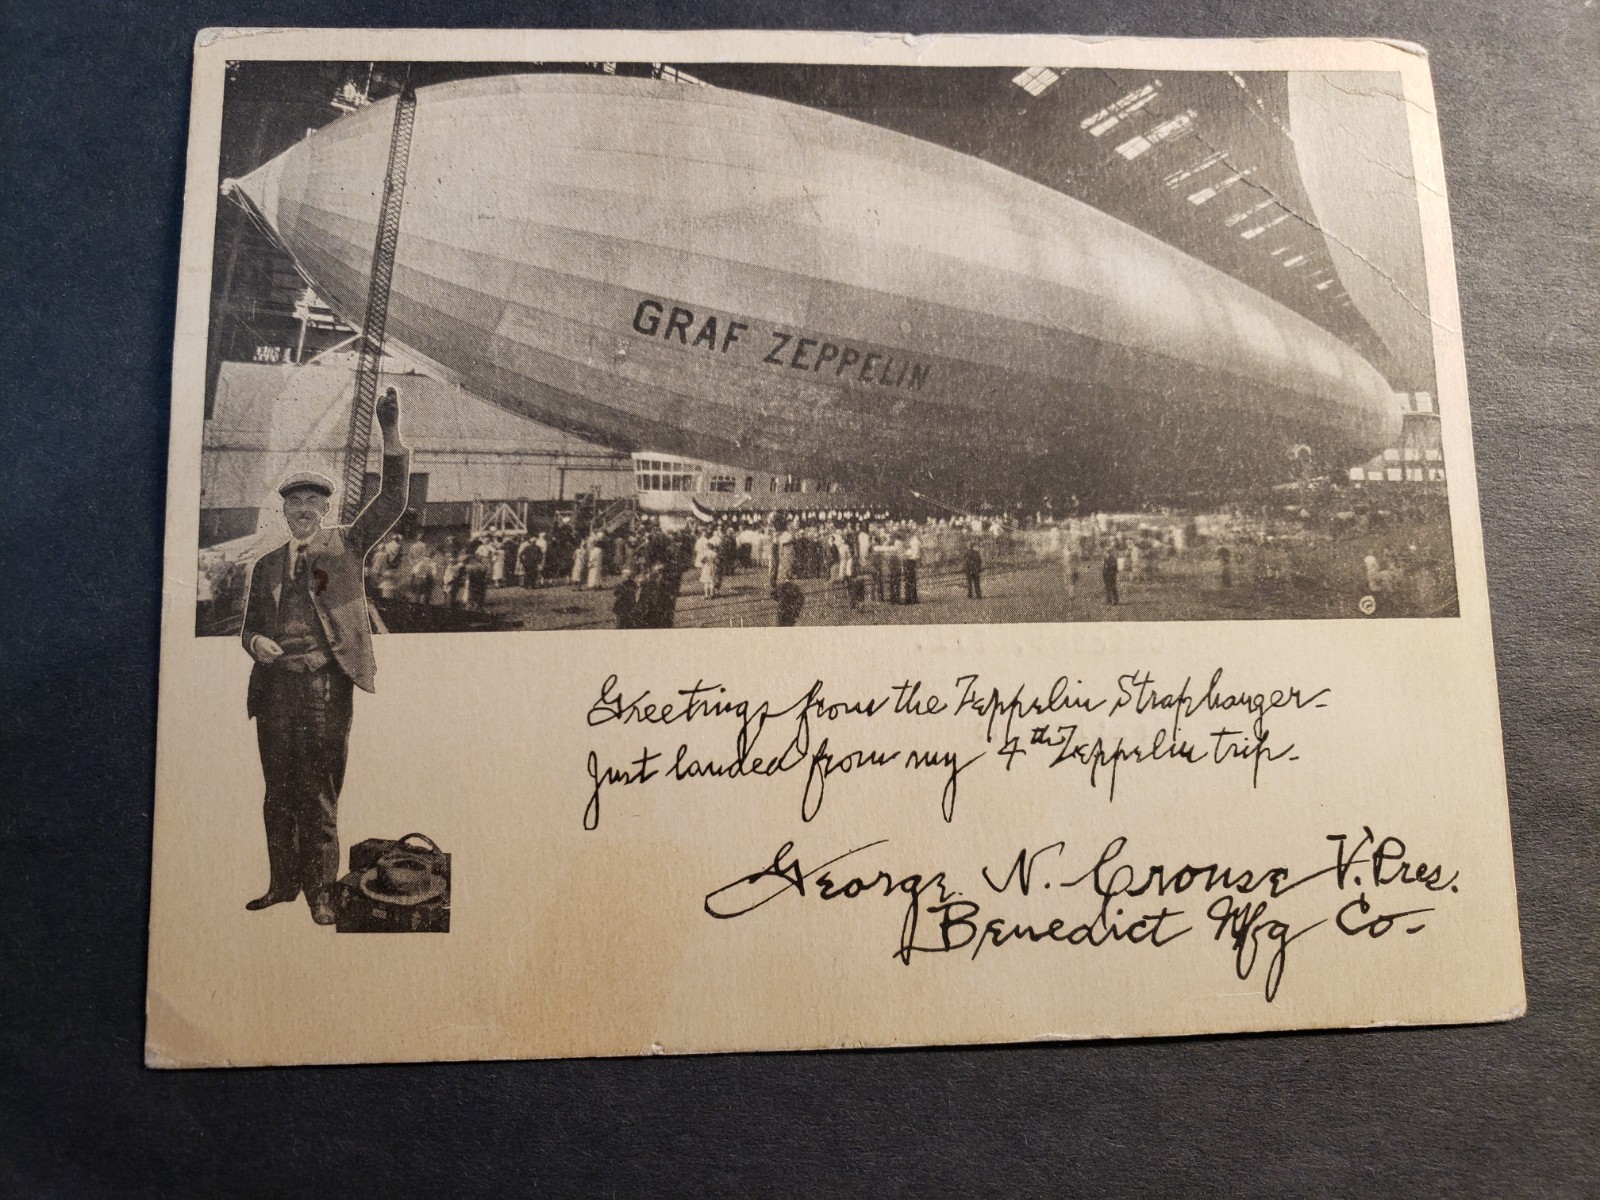 GRAF ZEPPELIN
©
Greetings from the Zeppelin Straphanger-
Just landed from my 4th Zeppelin trip.
George N. Crouse V. Pres.
Benedict Mfg Co-